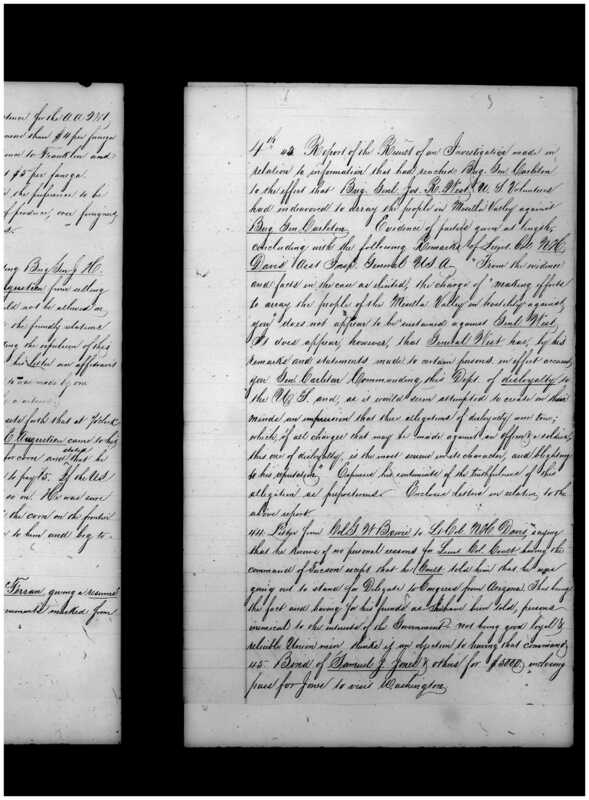 idence for the A.A.Q.M.
more than $4 per fanega
to Franklin and
$5 per fanega.
the preference to be
of produce, over foreigners
Brig Genl J. H.
from selling
not be allowed
the friendly relations
the expulsion of this
his letter an affidavit
to was made by one
sets forth that at
came to his
for corn and stated that he
to pay $5. If the U.S.
so on. He was sure
the corn on the frontier
to him and beg to
giving a resume
marked from
4th 43 Report of the Result of an Investigation made in
relation to information that had reached Brig. Gen Carleton
to the effect that Brig. Genl Jos. R. West, U.S. Volunteers
had endeavored to array the people in Mesilla Valley against
Brig. Gen Carleton. Evidence of parties given at length,
concluding with the following Remarks of Lieut Col. N.H.
Davis Asst Insp. General U.S.A. "From the evidence
and facts in the case as elicited, the charge of "making efforts
to array the people of the Mesilla Valley in hostility against
you" does not appear to be sustained against Genl West.
It does appear, however, that General West has, by his
remarks and statements made to certain persons, in effect accused
you Gen Carleton Commanding this Dept. of disloyalty to
the U.S. and, as it would seem attempted to create in their
minds an impression that these allegations of disloyalty were true;
which, of all charges that may be made against an officer & soldier,
this one of disloyalty, is the most severe in its character, and blighting
to his reputation." Expresses his of the truthfulness of this
allegation as preposterous. Encloses letters in relation to the
above report.
44. Letter from Col. G W Bowie to Lt. Col. N.H. Davis, saying
that he knows of no personal reasons for Lieut. Col. Coult having the
command of Tucson except that he (Coult) told him that he was
going out to stand for Delegate to Congress from Arizona. This being
the fact and having for his friends as I have been told, persons
inimical to the interests of the Government not being good loyal &
reliable Union men thinks it an objection to having that command.
45. Bond of Samuel J. Jones & others for $5000, enclosing
pass for Jones to visit Washington.